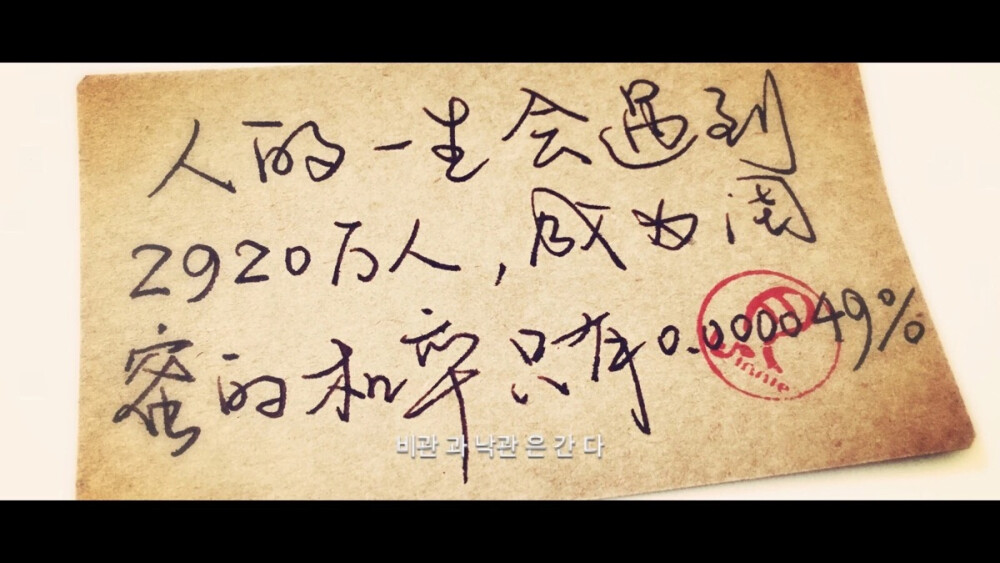 人的一生会遇到
2920万人,成为闺
蜜的机率只有0.000049%
비관 과 낙관 은 간 다